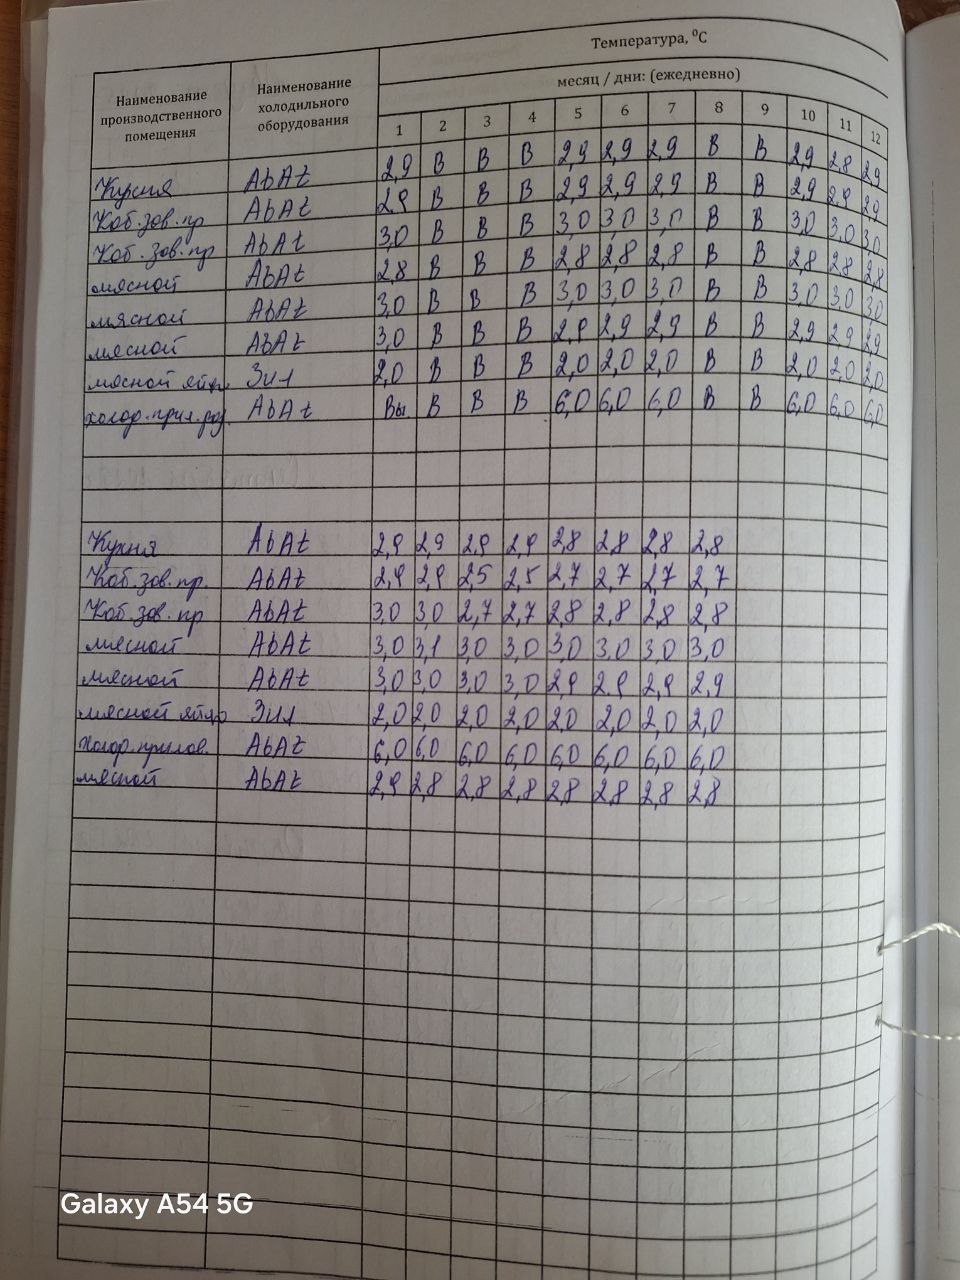 Температура, ⁰С
месяц / дни: (ежедневно)
Наименование производственного помещения Наименование холодильного оборудования 1 2 3 4 5 6 7 8 9 10 11 12
Кухня AbAt 2,9 В В В 2,9 2,9 2,9 В В 2,9 2,8 2,9
Каб.зав.пр AbAt 2,9 В В В 2,9 2,9 2,9 В В 2,9 2,9 2,9
Каб.зав.пр AbAt 3,0 В В В 3,0 3,0 3,0 В В 3,0 3,0 3,0
мясной AbAt 2,8 В В В 2,8 2,8 2,8 В В 2,8 2,8 2,8
мясной AbAt 3,0 В В В 3,0 3,0 3,0 В В 3,0 3,0 3,0
мясной AbAt 3,0 В В В 2,9 2,9 2,9 В В 2,9 2,9 2,9
мясной яйцо Зил 2,0 В В В 2,0 2,0 2,0 В В 2,0 2,0 2,0
AbAt Вы В В В 6,0 6,0 6,0 В В 6,0 6,0 6,0
Кухня AbAt 2,9 2,9 2,9 2,9 2,8 2,8 2,8 2,8
Каб.зав.пр. AbAt 2,9 2,9 2,5 2,5 2,7 2,7 2,7 2,7
Каб.зав.пр AbAt 3,0 3,0 2,7 2,7 2,8 2,8 2,8 2,8
мясной AbAt 3,0 3,1 3,0 3,0 3,0 3,0 3,0 3,0
мясной AbAt 3,0 3,0 3,0 3,0 2,9 2,9 2,9 2,9
мясной яйцо Зил 2,0 2,0 2,0 2,0 2,0 2,0 2,0 2,0
AbAt 6,0 6,0 6,0 6,0 6,0 6,0 6,0 6,0
мясной AbAt 2,9 2,8 2,8 2,8 2,8 2,8 2,8 2,8
Galaxy A54 5G